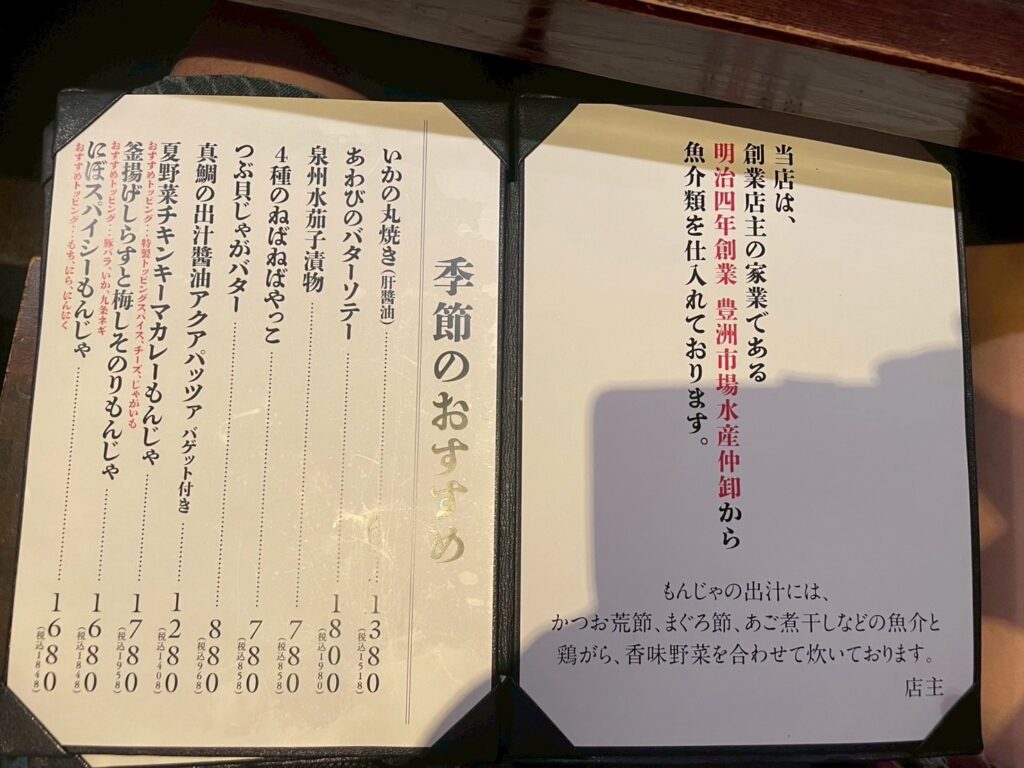 当店は、
創業店主の家業である
明治四年創業 豊洲市場水産仲卸から
魚介類を仕入れております。
もんじゃの出汁には、
かつお荒節、まぐろ節、あご煮干しなどの魚介と
鶏がら、香味野菜を合わせて炊いております。
店主
季節のおすすめ
いかの丸焼き(肝醬油)……1380(税込1518)
あわびのバターソテー……1800(税込1980)
泉州水茄子漬物……780(税込858)
4種のねばねばやっこ……780(税込858)
つぶ貝じゃがバター……880(税込968)
真鯛の出汁醬油アクアパッツァ バゲット付き……1280(税込1408)
夏野菜チキンキーマカレーもんじゃ……1780(税込1958)
おすすめトッピング…特製トッピングスパイス、チーズ、じゃがいも
釜揚げしらすと梅しそのりもんじゃ……1680(税込1848)
おすすめトッピング…豚バラ、いか、九条ネギ
にぼスパイシーもんじゃ……1680(税込1848)
おすすめトッピング…もち、にら、にんにく